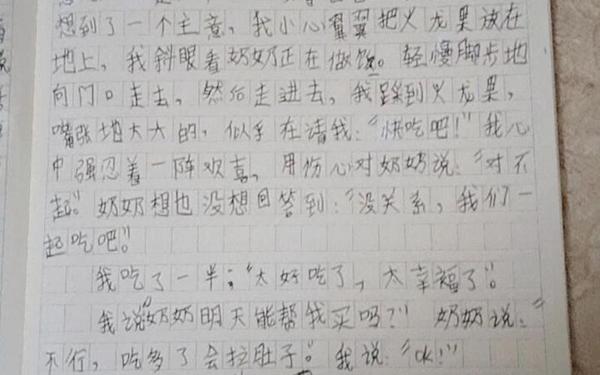 想到了一个主意，我小心翼翼把火龙果放在
地上，我斜眼看奶奶正在做饭。轻慢脚步地
向门口走去，然后走进去，我踩到火龙果，
嘴张地大大的，似乎在请我：“快吃吧！”我心
中强忍着一阵欢喜，用伤心对奶奶说：“对不
起。”奶奶想也没想回答到：“没关系，我们一
起吃吧。”
我吃了一半：“太好吃了，太幸福了”。
我说“奶奶明天能帮我买吗？”奶奶说：“
不行，吃多了会拉肚子”。我说：“ok！”